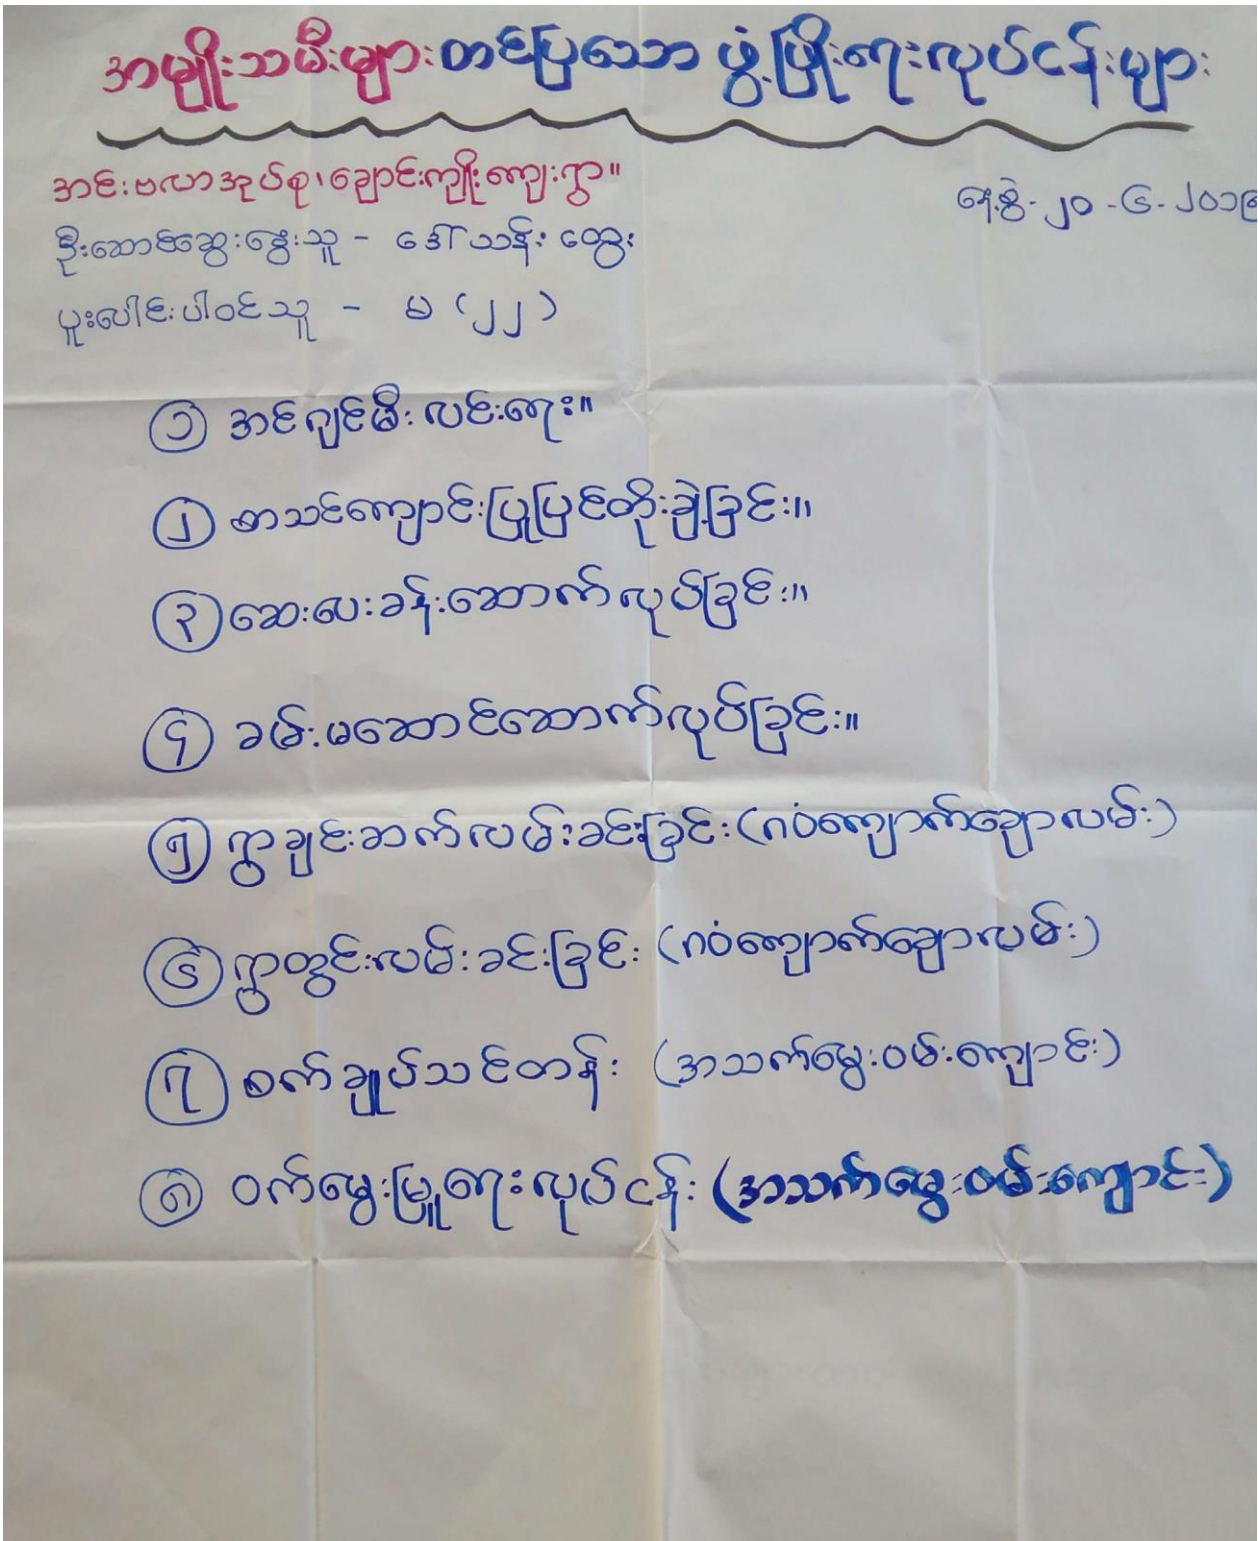 အမျိုးသမီးများ တင်ပြသော ဖွံ့ဖြိုးရေးလုပ်ငန်းများ
အင်းဗလာအုပ်စု၊ ချောင်းကျိုးကျေးရွာ။
နေ့စွဲ - ၂၀ - ၆ - ၂၀၁၉
ဦးဆောင်ဆွေးနွေးသူ - ဒေါ်သန်းထွေး
ပူးပေါင်းပါဝင်သူ - မ (၂၂)
၁ အင်ဂျင်မီးလင်းရေး။
၂ စာသင်ကျောင်းပြုပြင်တိုးချဲ့ခြင်း။
၃ ဆေးပေးခန်းဆောက်လုပ်ခြင်း။
၄ ခမ်းမဆောင်ဆောက်လုပ်ခြင်း။
၅ ရွာချင်းဆက်လမ်းခင်းခြင်း (ဂဝံကျောက်ချောလမ်း)
၆ ရွာတွင်းလမ်းခင်းခြင်း (ဂဝံကျောက်ချောလမ်း)
၇ စက်ချုပ်သင်တန်း (အသက်မွေးဝမ်းကျောင်း)
၈ ဝက်မွေးမြူရေးလုပ်ငန်း (အသက်မွေးဝမ်းကျောင်း)